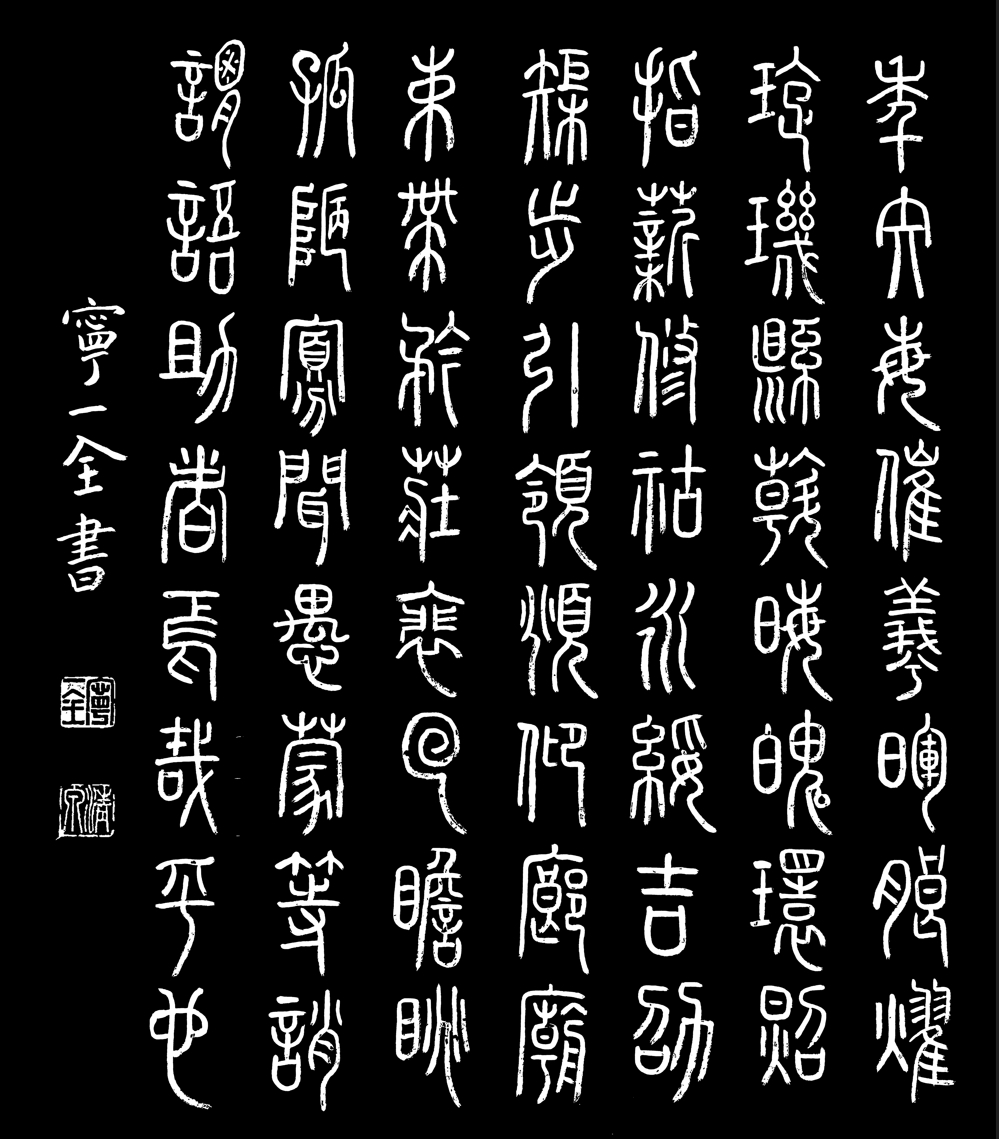 年矢每催羲暉朗燿
琁璣縣斡晦魄環照
指薪修祜永綏吉劭
榘步引領頫仰廊廟
束帶矜莊裵回瞻眺
孤陋寡聞愚蒙等誚
謂語助者焉哉乎也
寧一全書
寧全